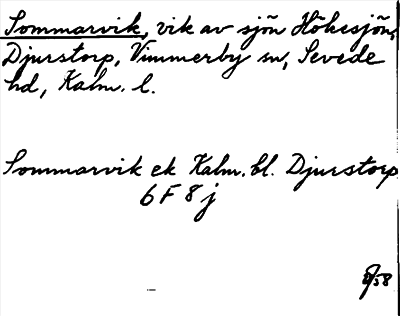 Sommarvik, vik av sjön Hökesjön,
Djurstorp, Vimmerby sn, Sevede
hd, Kalm. l.
Sommarvik ek Kalm. bl. Djurstorp
6 F 8 j